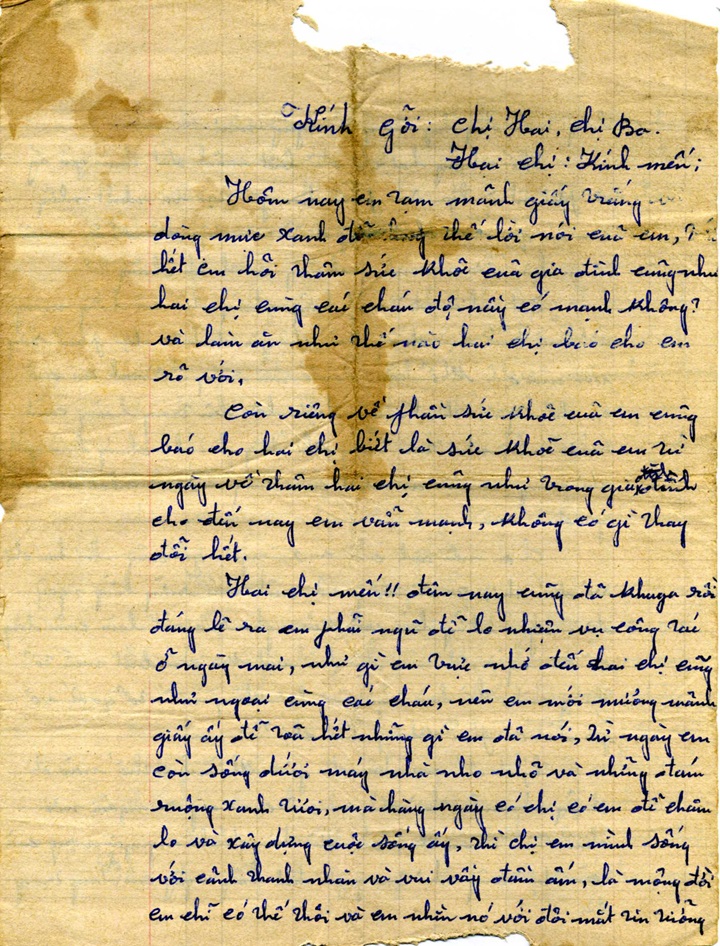 Kính gỡi: chị Hai, chị Ba.
Hai chị: Kính mến;
Hôm nay em tạm mãnh giấy trắng
dòng mưc xanh để thế lời nói cuã em,
hết em hỏi thăm sức khỏe cuã gia đình cũng như
hai chị cùng các cháu độ nầy có mạnh không?
và làm ăn như thế nào hai chị baó cho em
rõ với.
Còn riêng về phần sức khỏe cuã em cũng
baó cho hai chị biết là sức khoẽ cuã em từ
ngày về thăm hai chị cũng như trong gia đình
cho đến nay em vẫn mạnh, không có gì thay
đỗi hết.
Hai chị mến!! đêm nay cũng đã khuya rồi
đáng lẽ ra em phãi ngũ để lo nhiệm vụ công tác
ỡ ngày mai, như gì em trực nhớ đến hai chị cũng
như ngoại cùng các cháu, nên em mới mượng mãnh
giấy ấy để toã hết những gì em đã nói, từ ngày em
còn sống dưới máy nhà nho nhõ và những đám
ruộng xanh tươi, mà hàng ngày có chị có em để chăm
lo và xây dựng cuộc sống ấy, thì chị em mình sống
với cảnh thanh nhàn và vui vầy đầm ấm, là mộng đời
em chĩ có thế thôi và em nhìn nó với đôi mắt tin tưỡng